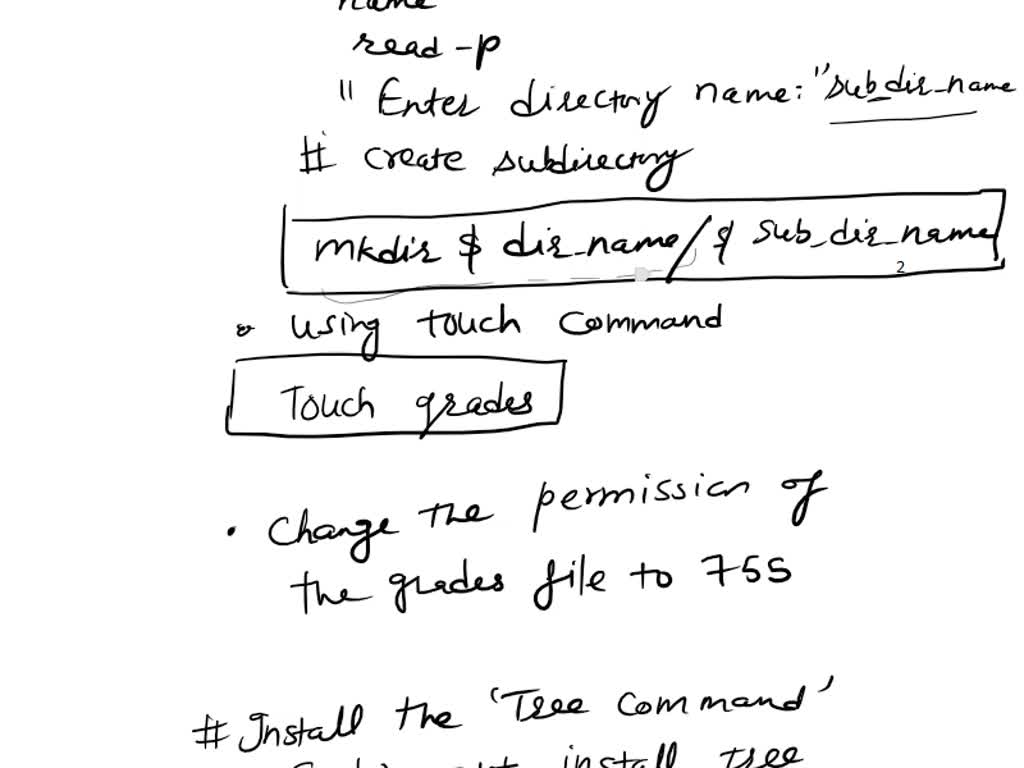 name
read -p
" Enter directory name: "sub_dir_name
# create subdirectory
mkdir $ dir_name/$ sub_dir_name
2
using touch command
Touch grades
• Change the permission of
the grades file to 755
# Install the 'Tree command'
install tree